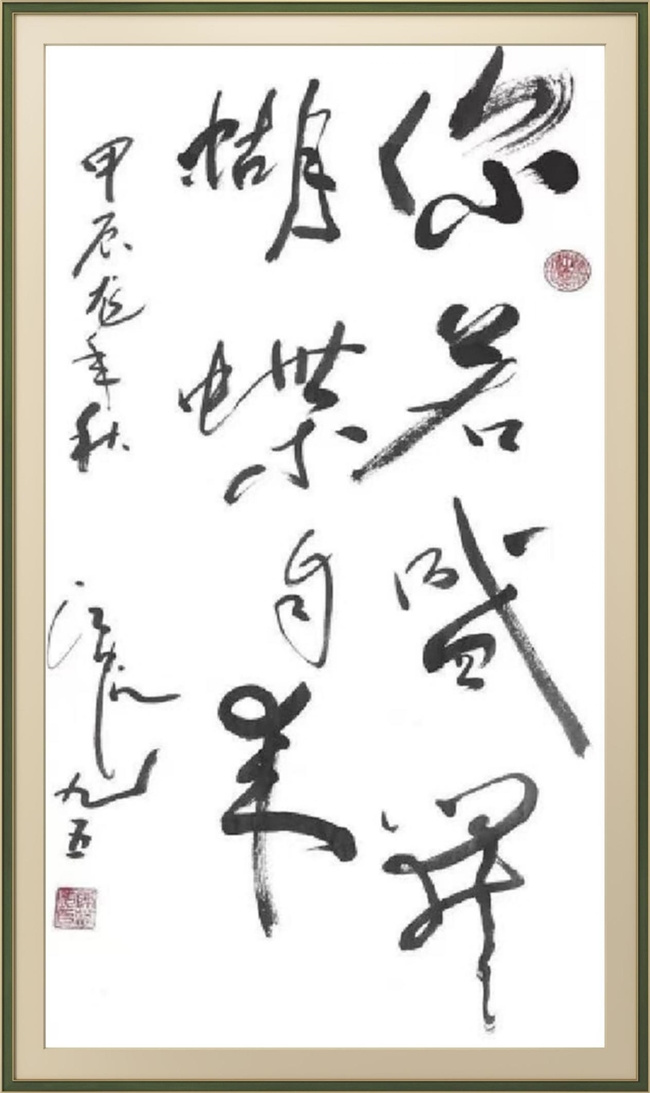 你若盛开
蝴蝶自来
甲辰龙年秋
九五